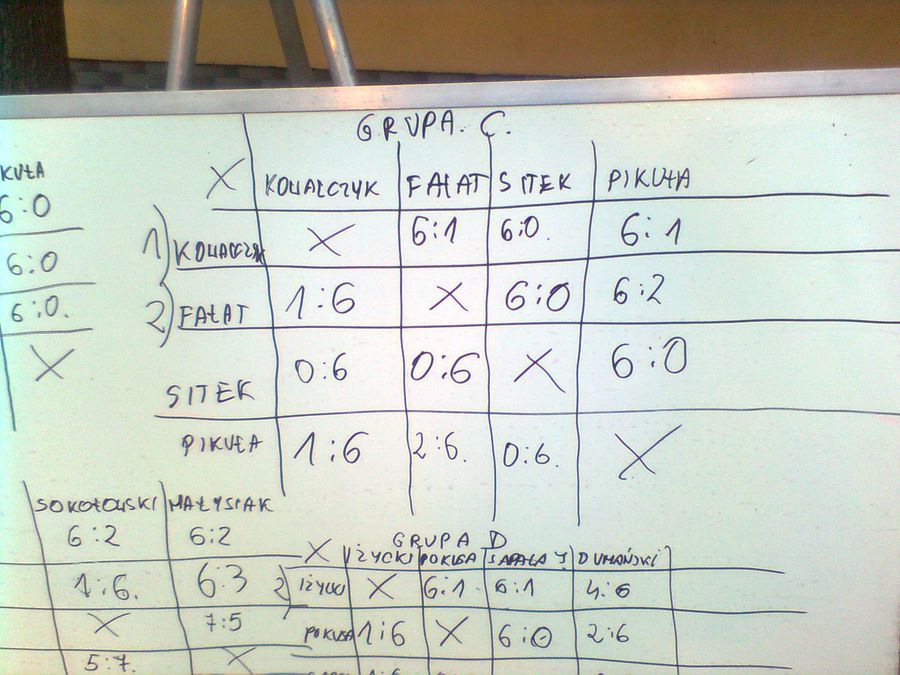 GRUPA. C.
X KOWALCZYK FAŁAT SITEK PIKUŁA
1 KOWALCZYK X 6:1 6:0. 6:1
2 FAŁAT 1:6 X 6:0 6:2
SITEK 0:6 0:6 X 6:0
PIKUŁA 1:6 2:6. 0:6. X
KUŁA
6:0
6:0
6:0.
X
SOKOŁOWSKI MAŁYSIAK
6:2 6:2
1:6. 6:3
X 7:5
5:7. X
GRUPA D
X IŻYCKI POKUSA SAPAŁA J DUMAŃSKI
2 IŻYCKI X 6:1 6:1 4:6
POKUSA 1:6 X 6:0 2:6